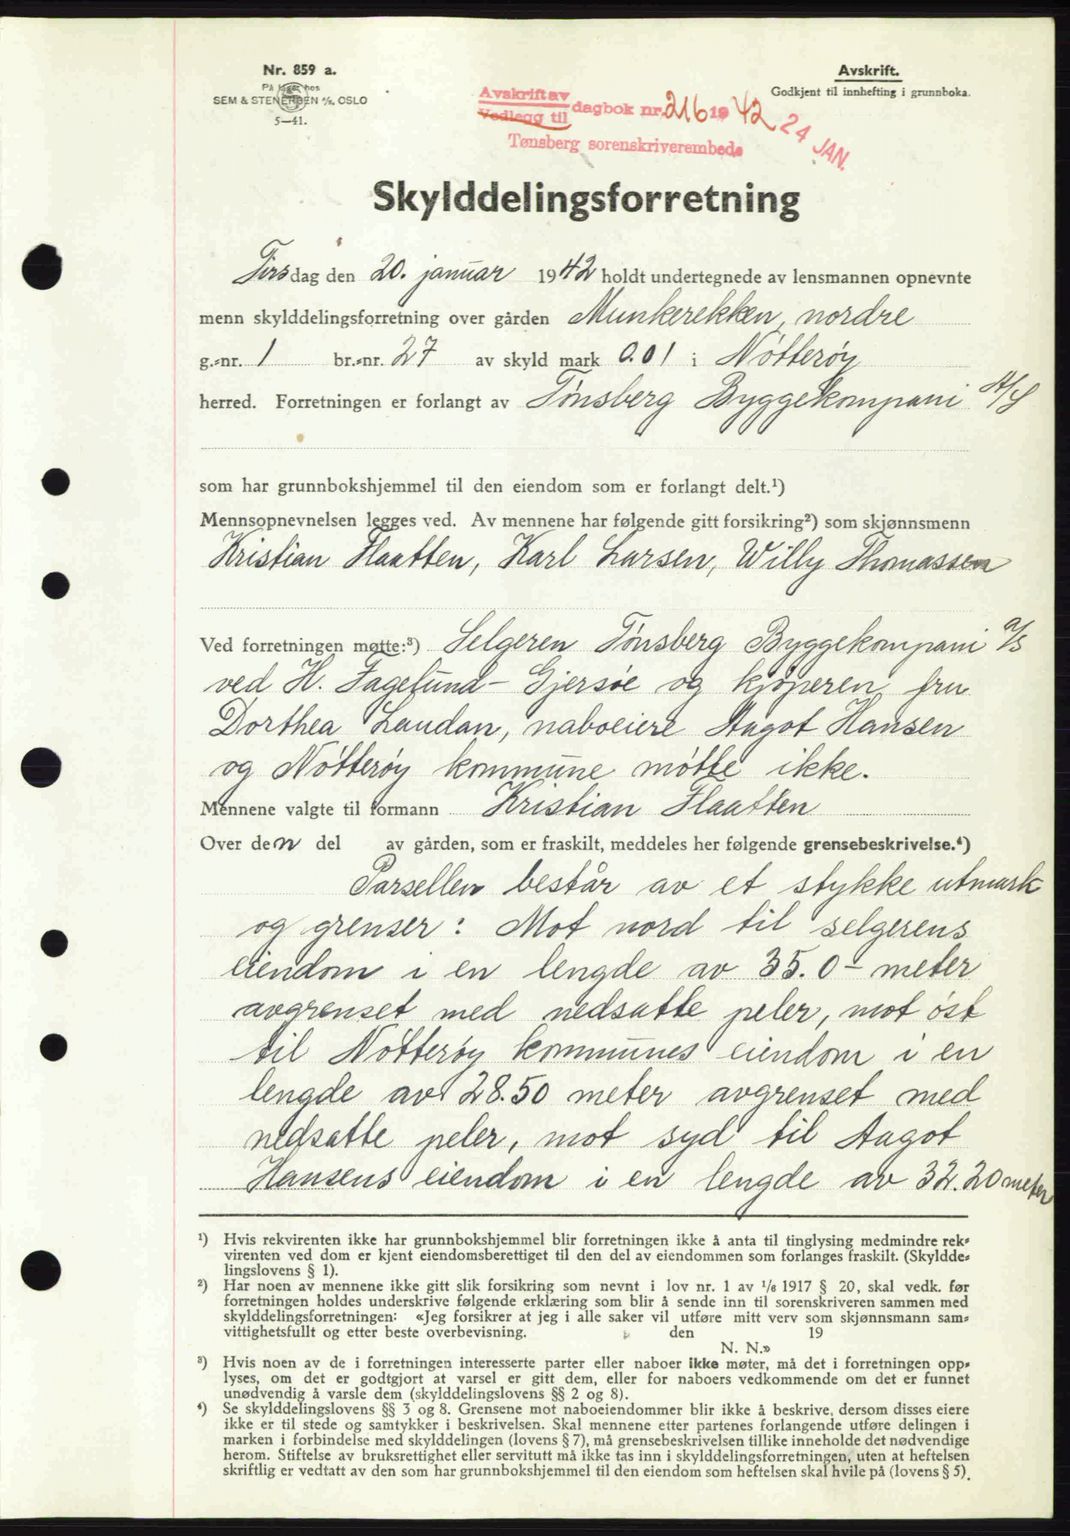 Nr. 859 a.
På lager hos
SEM & STENERSEN A/S, OSLO
5—41.
Avskrift.
Godkjent til innhefting i grunnboka.
Avskrift av
Vedlegg til dagbok nr. 216 1942 24 JAN.
Tønsberg sorenskriverembede
Skylddelingsforretning
Tirsdag den 20. januar 1942 holdt undertegnede av lensmannen opnevnte
menn skylddelingsforretning over gården Munkerekken, nordre
g.-nr. 1 br.-nr. 27 av skyld mark 0.01 i Nötteröy
herred. Forretningen er forlangt av Tönsberg Byggekompani A/S
som har grunnbokshjemmel til den eiendom som er forlangt delt.¹)
Mennsopnevnelsen legges ved. Av mennene har følgende gitt forsikring²) som skjønnsmenn
Kristian Flaatten, Karl Larsen, Willy Thomassen
Ved forretningen møtte:³) Selgeren Tönsberg Byggekompani a/s
ved H. Fagelund-Gjersöe og kjöperen fru
Dorthea Laudan, naboeiere Aagot Hansen
og Nötteröy kommune mötte ikke.
Mennene valgte til formann Kristian Flaatten
Over den del av gården, som er fraskilt, meddeles her følgende grensebeskrivelse.⁴)
Parsellen består av et stykke utmark
og grenser: Mot nord til selgerens
eiendom i en lengde av 35.0 - meter
avgrenset med nedsatte peler, mot öst
til Nötteröy kommunes eiendom i en
lengde av 28.50 meter avgrenset med
nedsatte peler, mot syd til Aagot
Hansens eiendom i en lengde av 32.20 meter
¹) Hvis rekvirenten ikke har grunnbokshjemmel blir forretningen ikke å anta til tinglysing medmindre rek-
virenten ved dom er kjent eiendomsberettiget til den del av eiendommen som forlanges fraskilt. (Skyldde-
lingslovens § 1).
²) Har noen av mennene ikke gitt slik forsikring som nevnt i lov nr. 1 av 1/6 1917 § 20, skal vedk. før
forretningen holdes underskrive følgende erklæring som blir å sende inn til sorenskriveren sammen med
skylddelingsforretningen: «Jeg forsikrer at jeg i alle saker vil utføre mitt verv som skjønnsmann sam-
vittighetsfullt og etter beste overbevisning. den 19
N. N.»
³) Hvis noen av de i forretningen interesserte parter eller naboer ikke møter, må det i forretningen opp-
lyses, om det er godtgjort at varsel er gitt dem, eller for naboers vedkommende om det er funnet
unødvendig å varsle dem (skylddelingslovens §§ 2 og 8).
⁴) Se skylddelingslovens §§ 3 og 8. Grensene mot naboeiendommer blir ikke å beskrive, dersom disses eiere
ikke er til stede og samtykker i beskrivelsen. Skal mennene etter partenes forlangende utføre delingen i
marken i forbindelse med skylddelingen (lovens § 7), må grensebeskrivelsen tillike inneholde det nødvendige
herom. Stiftelse av bruksrettighet eller servitutt må ikke tas inn i skylddelingsforretningen, uten at heftelsen
skriftlig er vedtatt av den som har grunnbokshjemmel til den eiendom som heftelsen skal hvile på (lovens § 5).